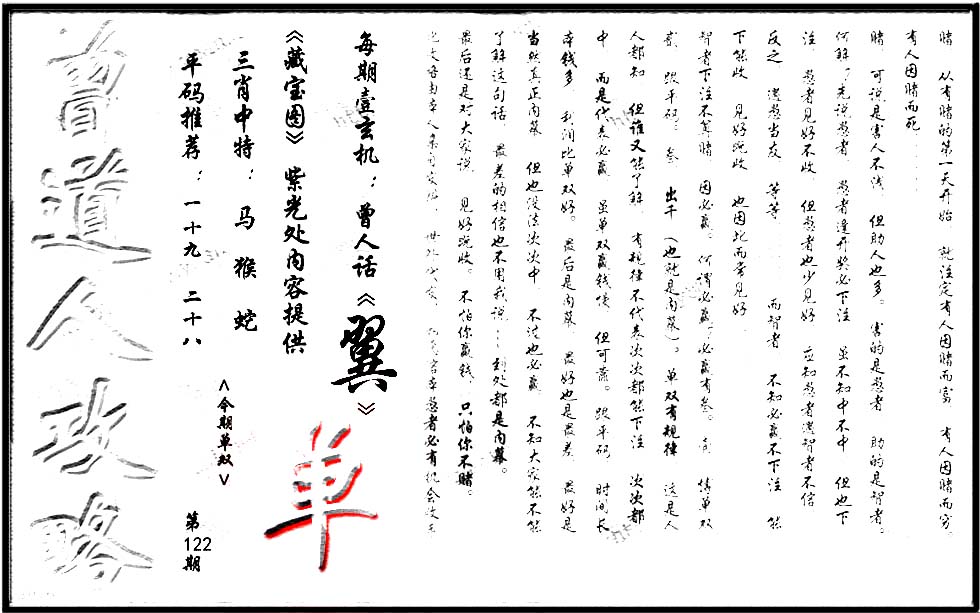 赌 从有赌的第一天开始 就注定有人因赌而富 有人因赌而穷。
有人因赌而死……
赌 可说是害人不浅 但助人也多。害的是愚者 助的是智者。
何解？先说愚者 愚者逢开奖必下注 虽不知中不中 但也下
注 愚者见好不收 但愚者也少见好 应知愚者遇智者不信
反之 遇愚当友 等等…… 而智者 不知必赢不下注 能
下能收 见好就收 也因此而常见好
智者下注不算赌 因必赢。何谓必赢？必赢有叁。 情单双
贰 跟平码。叁 出千（也就是内幕）。单双有规律 这是人
人都知 但谁又能了解 有规律不代表次次都能下注 次次都
中 而是代表必赢 虽单双赢钱慢 但可靠。跟平码 时间长
本钱多 利润比单双好。最后是内幕 最好也是最差 最好是
当然真正内幕 但也没法次次中 不过也必赢 不知大家能不能
了解这句话 最差的相信也不用我说……到处都是内幕。
最后还是对大家说 见好就收。不怕你赢钱，只怕你不赌。
愚者必有机会
每期壹玄机：曾人话《翼》
《藏宝图》紫光处内容提供
三肖中特：马 猴 蛇
平码推荐：一十九 二十八
<今期单双>
单
第122期
曾道人攻略